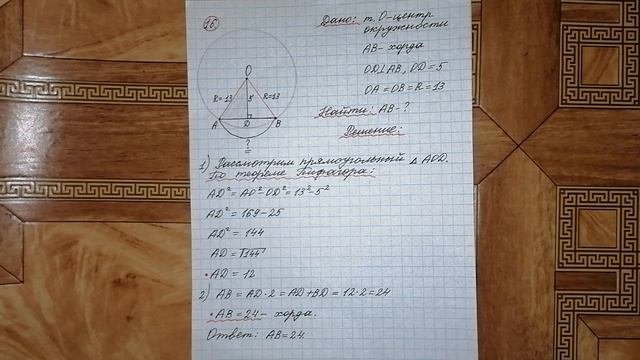 16
Дано: т. О-центр
окружности
АВ- хорда
OD⊥AB, OD=5
OA=OB=R=13
Найти: АВ-?
Решение:
O
R=13 5 R=13
A D B
?
1) Рассмотрим прямоугольный △ AOD.
По теореме Пифагора:
AD²= AO²-OD²=13²-5²
AD²= 169-25
AD²= 144
AD=√144
AD=12
2) AB = AD·2 = AD+BD = 12·2=24
AB=24- хорда.
Ответ: AB=24.